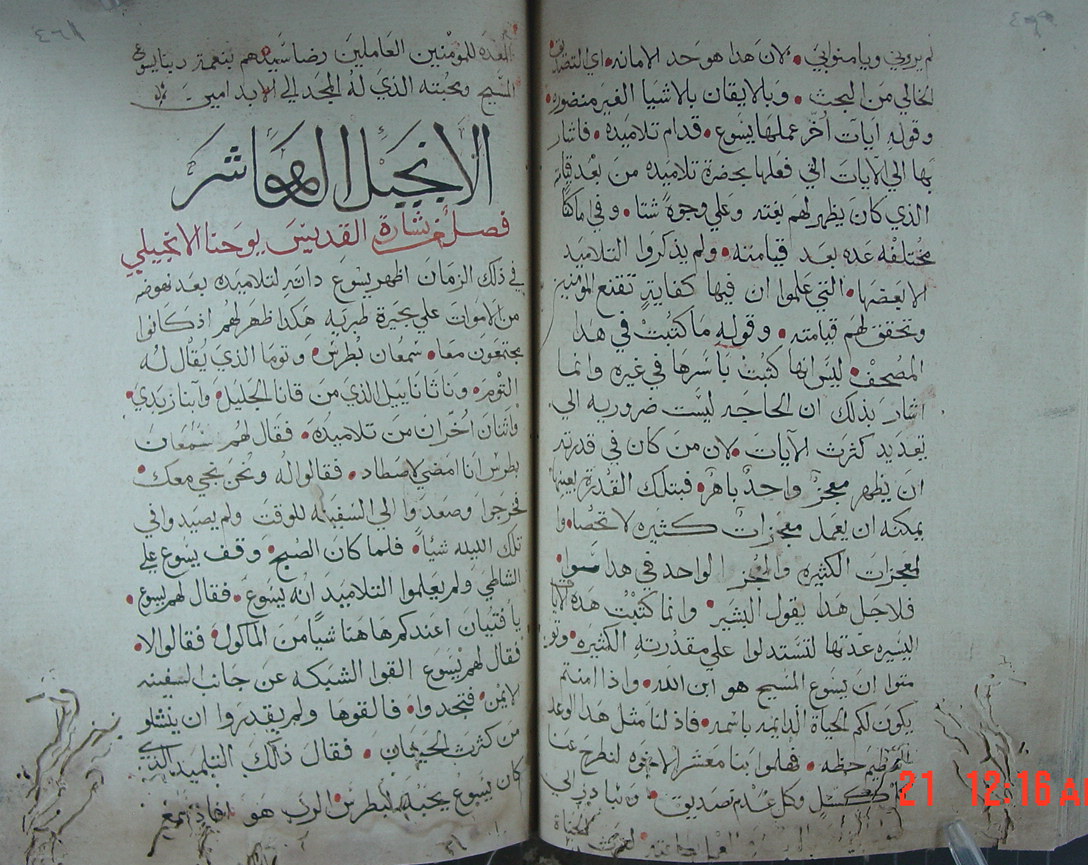 لم يروني ويامنوا بي • لان هدا هو حد الامانه • اي التصديق
الخالي من البحث • وبلايقان بلاشيا الغير منضوره
وقوله ايات اخر عملها يسوع • قدام تلاميده • فاشار
بها الي الايات الذي فعلها بحضرة تلاميده من بعد قيامته
الذي كان يظهر لهم بغته وعلي وجوه شتا • وفي اماكن
مختلفه عده بعد قيامته • ولم يدكروا التلاميد
الا بعضها • التي علموا ان فيها كفاية تقنع المومنين
وتحقق لهم قيامته • وقوله ما كتبت في هدا
المصحف • ليس انها كتبت باسرها في غيره وانما
اشار بدلك ان الحاجه ليست ضروريه الي
تعديد كثرت الايات • لان من كان في قدرته
ان يظهر معجز واحد باهر • فبتلك القدرة بعينها
يمكنه ان يعمل معجزات كثيره لا تحصا • وا
لمعجزات الكثيره والمعجز الواحد في هدا سوا •
فلاجل هدا يقول البشير • وانما كتبت هده الايات
اليسيره عدتها لتستدلوا علي مقدرته الكثيره • ولتو
منوا ان يسوع المسيح هو ابن الله • وادا امنتم
يكون لكم الحياة الدايمه باسمه • فاد لنا مثل هدا الوعد
العظيم حظه • فهلموا بنا معشر الاخوه لنطرح عنا
كل كسل وكل عدم تصديق • ونبادر الي
461
المعده للمومنين العاملين رضا سيدهم بنعمة ربنا يسوع
المسيح ومحبته الدي له المجد الي الابد امين
الانجيل العاشر
فصل من بشارة القديس يوحنا الانجيلي
في دلك الزمان اظهر يسوع داته لتلاميده بعد نهوضه
من الاموات علي بحيرة طبريه هكدا ظهر لهم اد كانوا
مجتمعون معا • سمعان بطرس • وتوما الدي يقال له
التوم • وناثانابيل الدي من قانا الجليل • وابنا زبدي •
واثنان اخران من تلاميده • فقال لهم سمعان
بطرس انا امضي لاصطاد • فقالوا له ونحن نجي معك •
فخرجوا وصعدوا الي السفينه للوقت ولم يصيدوا في
تلك الليله شيا • فلما كان الصبح • وقف يسوع علي
الشاطي ولم يعلموا التلاميد انه يسوع • فقال لهم يسوع •
يا فتيان اعندكم هاهنا شيا من الماكول • فقالوا لا •
فقال لهم يسوع القوا الشبكه عن جانب السفينه
الايمن • فتجدوا • فالقوها ولم يقدروا ان ينشلو
من كثرت الحيتان • فقال دلك التلميد الدي
كان يسوع يحبه لبطرس الرب هو
21 12:16 AM